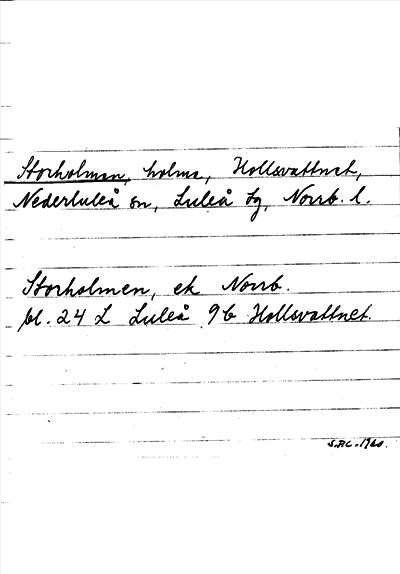 Storholmen, holme, Hollsvattnet,
Nederluleå sn, Luleå tg, Norrb. l.
Storholmen, ek Norrb.
bl. 24 L Luleå 9b Hollsvattnet.
1960.